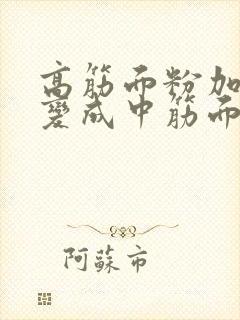 高筋面粉加
变成中筋面
阿苏市